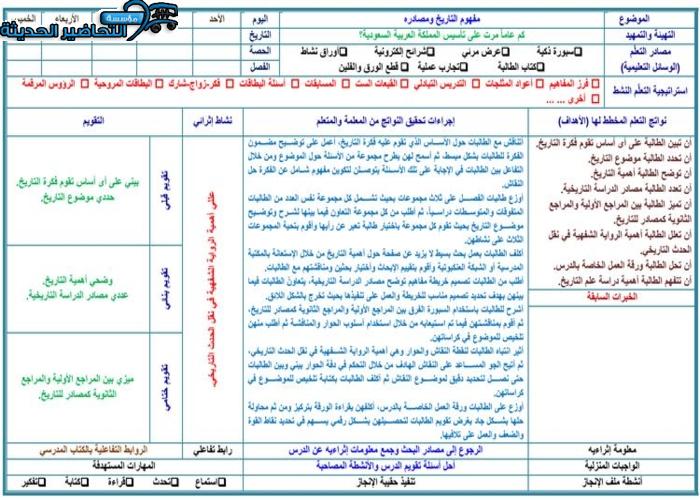 مؤسسة
التحاضير الحديثة
الموضوع
مفهوم التاريخ ومصادره
اليوم
الأحد
الأربعاء
الخميس
التهيئة والتمهيد
كم عاماً مرت على تأسيس المملكة العربية السعودية؟
التاريخ
مصادر التعلم
سبورة ذكية
عرض مرئي
شرائح إلكترونية
أوراق نشاط
الحصة
(الوسائل التعليمية)
كتاب الطالبة
تجارب عملية
قطع الورق والفلين
الفصل
استراتيجية التعلم النشط
فرز المفاهيم
أعواد المثلجات
التدريس التبادلي
القبعات الست
المسابقات
أسئلة البطاقات
فكر-زاوج-شارك
البطاقات المروحية
الرؤوس المرقمة
أخرى ... ...
نواتج التعلم المخطط لها (الأهداف)
إجراءات تحقيق النواتج من المعلمة والمتعلم
نشاط إثرائي
التقويم
أن تبين الطالبة على أى أساس تقوم فكرة التاريخ.
أن تحدد الطالبة موضوع التاريخ.
أن توضح الطالبة أهمية التاريخ.
أن تعدد الطالبة مصادر الدراسة التاريخية.
أن تميز الطالبة بين المراجع الأولية والمراجع
الثانوية كمصادر للتاريخ.
أن تعلل الطالبة أهمية الرواية الشفهية في نقل
الحدث التاريخي.
أن تحل الطالبة ورقة العمل الخاصة بالدرس.
أن تتفهم الطالبة أهمية دراسة علم التاريخ.
الخبرات السابقة
أناقش مع الطالبات حول الأساس الذي تقوم عليه فكرة التاريخ، أعمل على توضيح مضمون
الفكرة للطالبات بشكل مبسط، ثم أسمح لهن بطرح مجموعة من الأسئلة حول الموضوع ومن خلال
التفاعل بين الطالبات في الإجابة على تلك الأسئلة يتوصلن لتكوين مفهوم شامل عن الفكرة حل
النقاش.
أوزع طالبات الفصل على ثلاث مجموعات بحيث تشمل كل مجموعة نفس العدد من الطالبات
المتفوقات والمتوسطات دراسياً، ثم أطلب من كل مجموعة التعاون فيما بينها لشرح وتوضيح
موضوع التاريخ بحيث تقوم كل مجموعة باختيار طالبة تعبر عن رأيها وأقوم بتحية المجموعات
الثلاث على نشاطهن.
أكلف الطالبات بعمل بحث بسيط لا يزيد عن صفحة حول أهمية التاريخ من خلال الإستعانة بالمكتبة
المدرسية أو الشبكة العنكبوتية وأقوم بتقييم الإبحاث وأختيار بحثين ومناقشتهم مع الطالبات.
أطلب من الطالبات تصميم خريطة مفاهيم توضح مصادر الدراسة التاريخية، يتعاون الطالبات فيما
بينهن بهدف تحديد تصميم مناسب للخريطة والعمل على تنفيذها بحيث تخرج بالشكل اللائق.
أشرح للطالبات باستخدام السبورة الفرق بين المراجع الأولية والمراجع الثانوية كمصادر للتاريخ،
ثم أقوم بمناقشتهن فيما تم استيعابه من خلال استخدام أسلوب الحوار والمناقشة ثم أطلب منهن
تلخيص للموضوع في كراساتهن.
أثير انتباه الطالبات لنقطة النقاش والحوار وهي أهمية الرواية الشفهية في نقل الحدث التاريخي،
ثم أتيح الجو المساعد على النقاش الهادف من خلال التحكم في دفة الحوار بيني وبين الطالبات
حتى نصل لتحديد دقيق لموضوع النقاش ثم أكلف الطالبات بكتابة تلخيص للموضوع في
كراساتهن.
أوزع على الطالبات ورقة العمل الخاصة بالدرس، أكلفهن بقراءة الورقة بتركيز ومن ثم محاولة
حلها بشكل جاد بغرض تقويم الطالبات لتحصيلهن بشكل رقمي يسهم في تحديد نقاط القوة
والضعف والعمل على تلافيها.
عللي أهمية الرواية الشفهية في نقل الحدث التاريخي.
تقويم قبلي
بيني على أى أساس تقوم فكرة التاريخ.
حددي موضوع التاريخ.
تقويم بنائي
وضحي أهمية التاريخ.
عددي مصادر الدراسة التاريخية.
تقويم ختامي
ميزي بين المراجع الأولية والمراجع
الثانوية كمصادر للتاريخ.
معلومة إثراءيه
الرجوع إلى مصادر البحث وجمع معلومات إثراءيه عن الدرس
رابط تفاعلي
الروابط التفاعلية بالكتاب المدرسي
الواجبات المنزلية
أحل أسئلة تقويم الدرس والأنشطة المصاحبة
المهارات المستهدفة
أنشطة ملف الإنجاز
تنفيذ حقيبة الإنجاز
استماع
تحدث
قراءة
كتابة
تفكير